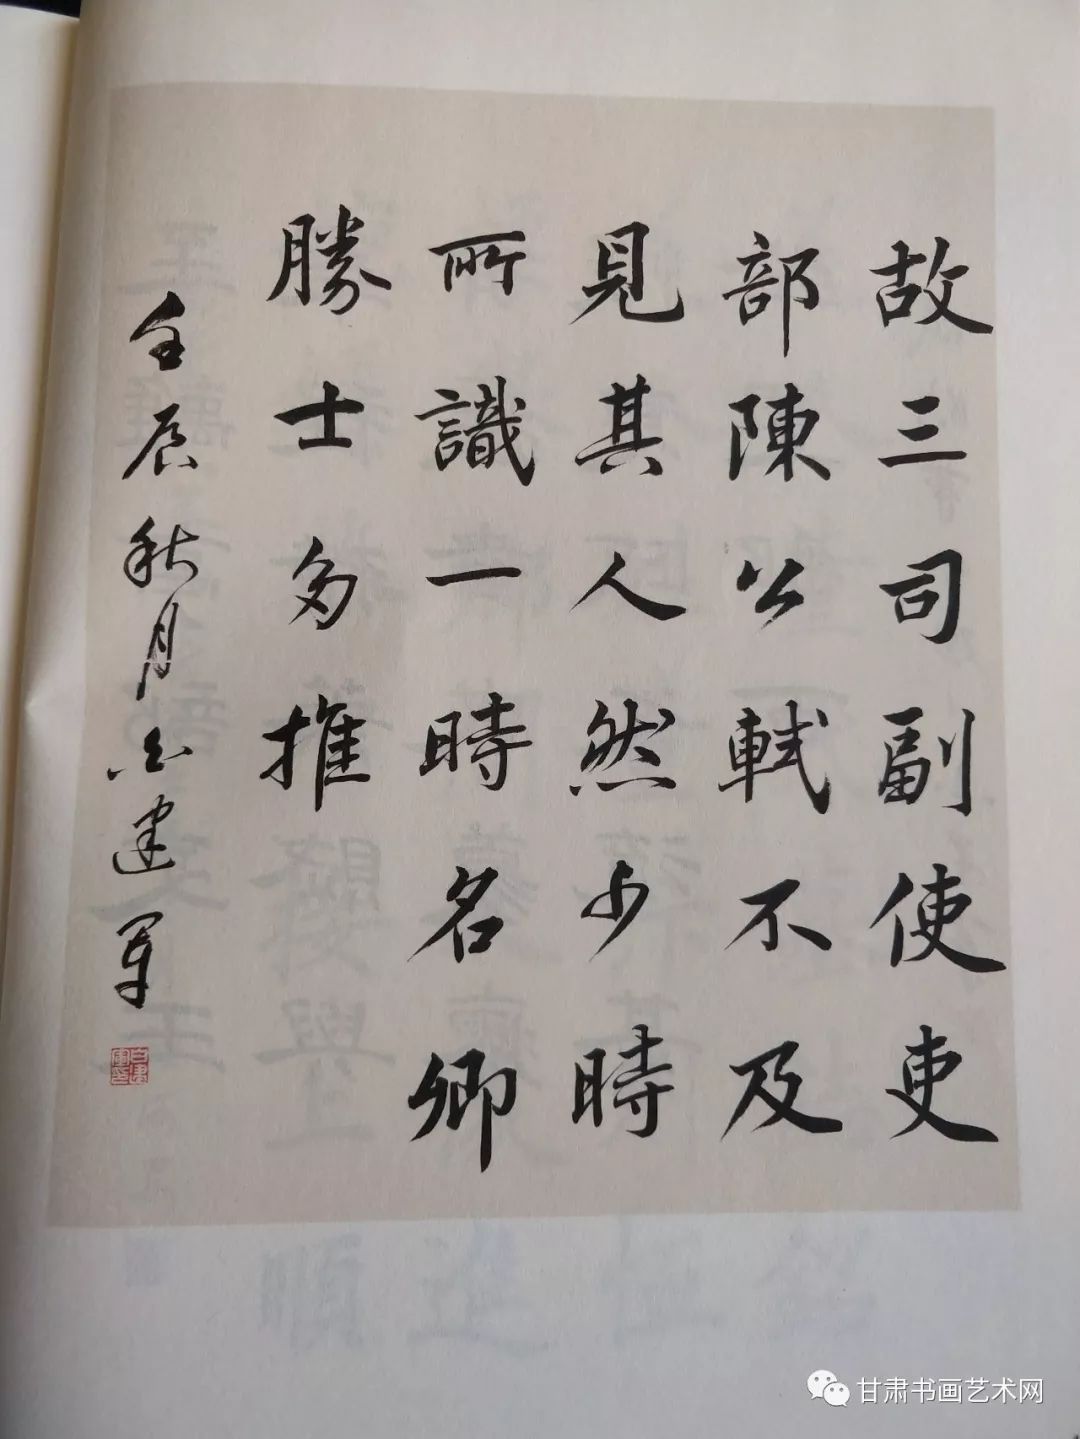 故三司副使吏
部陳公軾不及
見其人然少時
所識一時名卿
勝士多推
壬辰秋月白建軍
甘肃书画艺术网